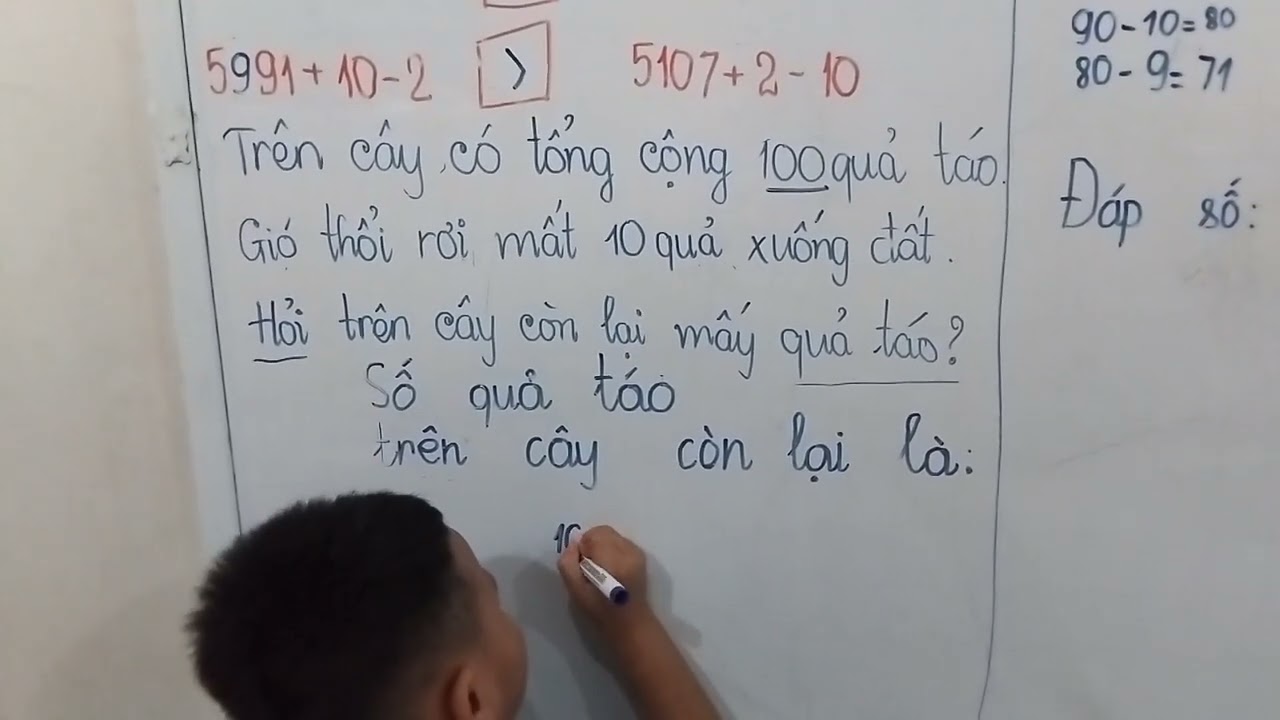 5991 + 10 - 2 > 5107 + 2 - 10
Trên cây có tổng cộng 100 quả táo.
Gió thổi rơi mất 10 quả xuống đất.
Hỏi trên cây còn lại mấy quả táo?
Số quả táo
trên cây còn lại là:
10
90 - 10 = 80
80 - 9 = 71
Đáp số: